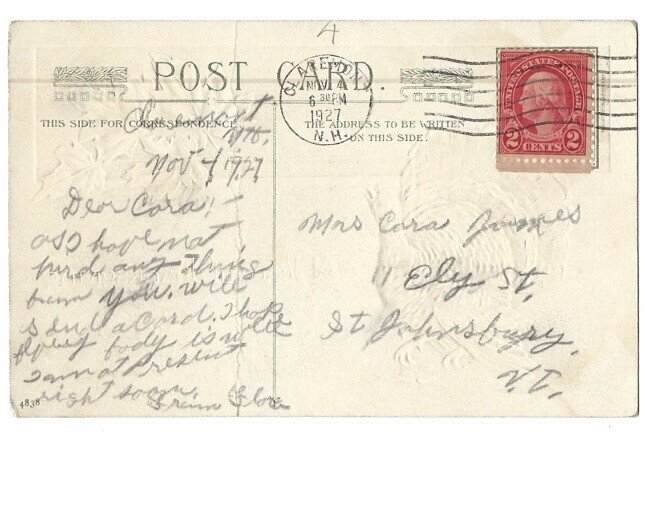 4
POST CARD.
CLAREMONT
NOV 4
6 30 PM
1927
N.H.
UNITED STATES POSTAGE
2 CENTS 2
THIS SIDE FOR CORRESPONDENCE
THE ADDRESS TO BE WRITTEN
ON THIS SIDE.
Nov 4 1927
Dear Cora,-
as I have not
hird any thing
from you. will
send a Card. I hop
body is well
I am not
right soon.
From
Mrs Cora James
Ely St.
St Johnsbury,
V.T.
4838